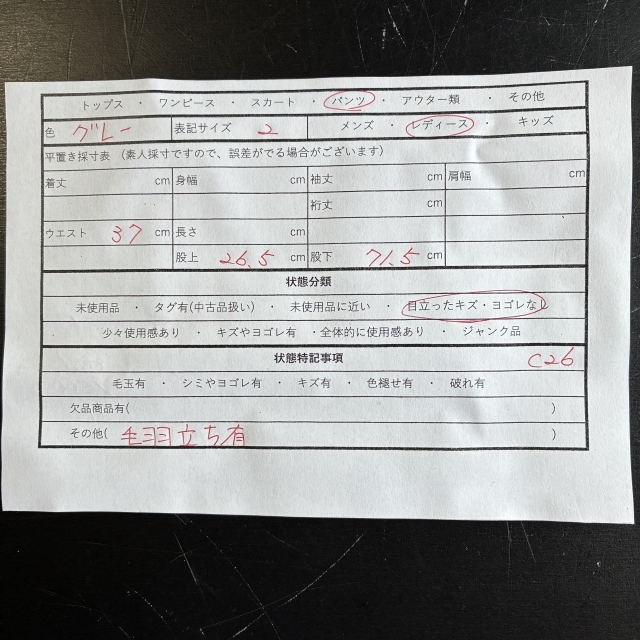 トップス ・ ワンピース ・ スカート ・ パンツ ・ アウター類 ・ その他
色 グレー 表記サイズ 2 メンズ ・ レディース ・ キッズ
平置き採寸表 (素人採寸ですので、誤差がでる場合がございます)
着丈 cm 身幅 cm 袖丈 cm 肩幅 cm
裄丈 cm
ウエスト 37 cm 長さ cm
股上 26.5 cm 股下 71.5 cm
状態分類
未使用品 ・ タグ有(中古品扱い) ・ 未使用品に近い ・ 目立ったキズ・ヨゴレなし
少々使用感あり ・ キズやヨゴレ有 ・全体的に使用感あり ・ ジャンク品
状態特記事項 C26
毛玉有 ・ シミやヨゴレ有 ・ キズ有 ・ 色褪せ有 ・ 破れ有
欠品商品有( )
その他( 毛羽立ち有 )